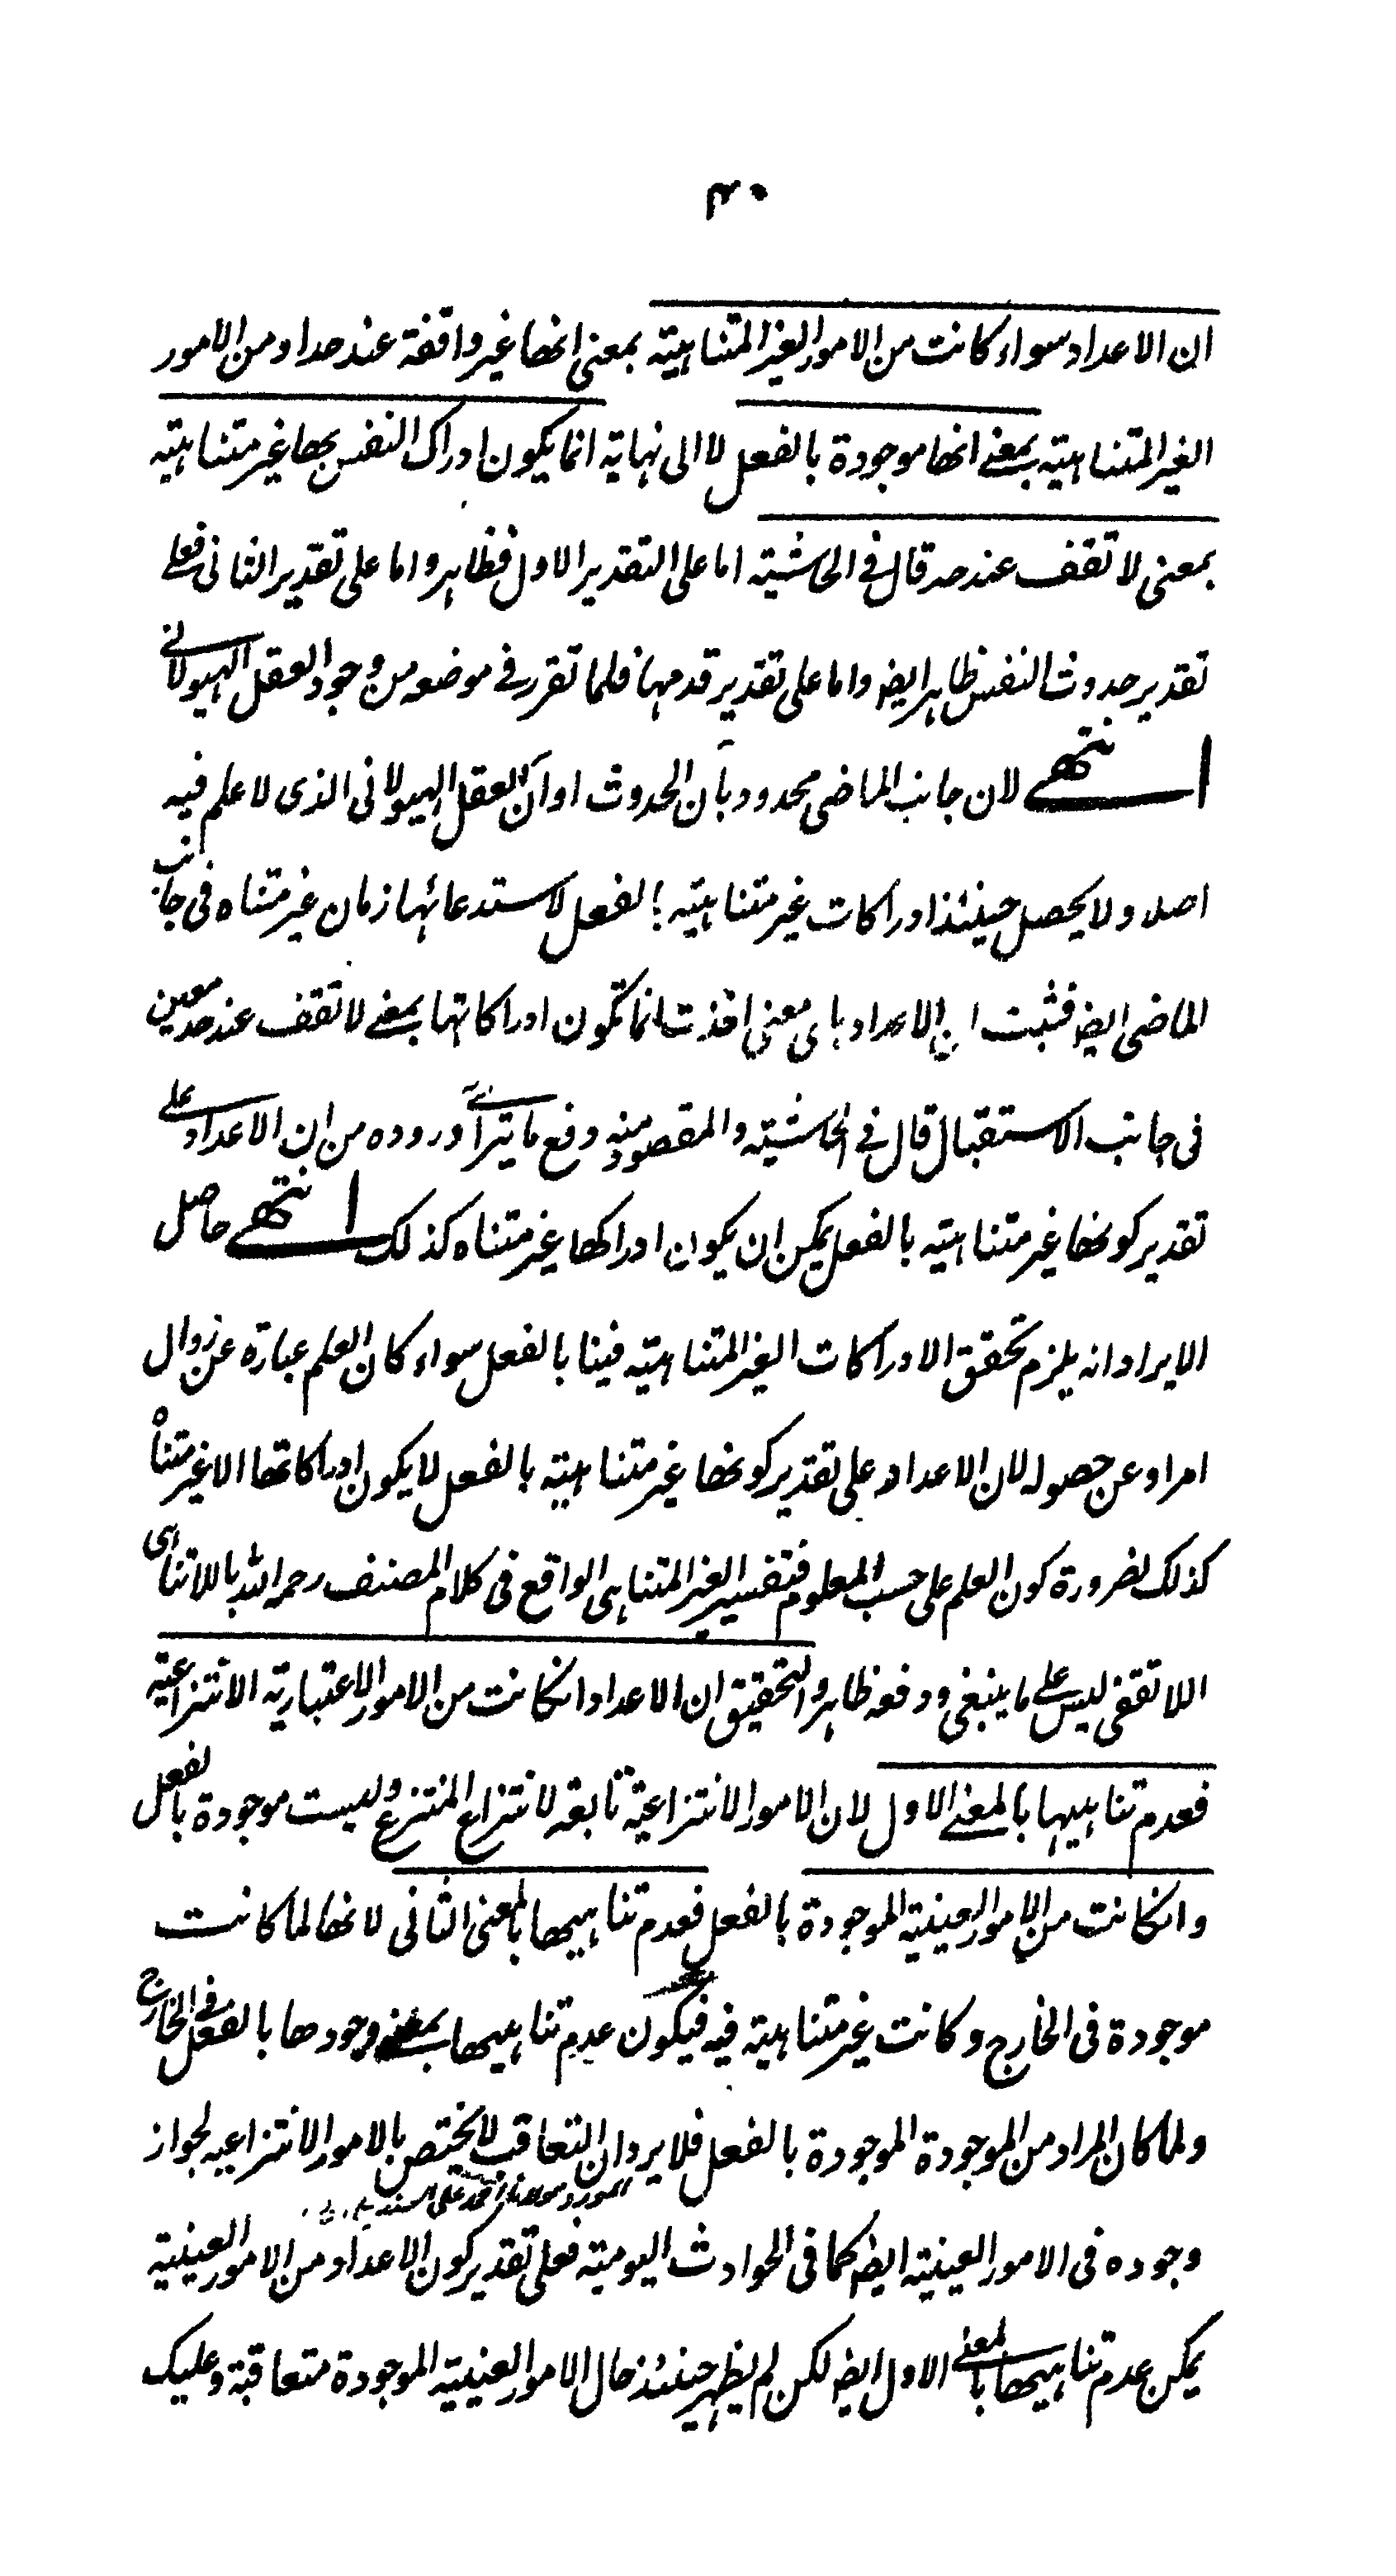 ٤٠
ان الاعداد سواء كانت من الامور الغير المتناهية بمعنى انها غير واقفة عند حد او من الامور
الغير المتناهية بمعنى انها موجودة بالفعل لا الى نهاية انما يكون ادراك النفس بها غير متناهية
بمعنى لا تقف عند حد قال في الحاشية اما على التقدير الاول فظاهر واما على تقدير الثانى فعلى
تقدير حدوث النفس ظاهر ايض واما على تقدير قدمها فلما تقرر في موضعه من وجود العقل الهيولانى
انتهى لان جانب الماضى محدود بآن الحدوث او آن العقل الهيولانى الذى لا علم فيه
اصلا ولا يحصل حينئذ ادراكات غير متناهية بالفعل لاستدعائها زمان غير متناه فى جانب
الماضى ايض فثبت ان الاعداد باى معنى اخذت انما تكون ادراكاتها بمعنى لا تقف عند حد معين
فى جانب الاستقبال قال في الحاشية والمقصود منه دفع ما يترا أى وروده من ان الاعداد على
تقدير كونها غير متناهية بالفعل يمكن ان يكون ادراكها غير متناه كذلك انتهى حاصل
الايراد انه يلزم تحقق الادراكات الغير المتناهية فينا بالفعل سواء كان العلم عبارة عن زوال
امر او عن حصوله لان الاعداد على تقدير كونها غير متناهية بالفعل لا يكون ادراكاتها الا غير متناه
كذلك لضرورة كون العلم على حسب المعلوم فتفسير الغير المتناهى الواقع فى كلام المصنف رحمه الله باللاتناهى
اللا تقفى ليس على ما ينبغى ودفعه ظاهر والتحقيق ان الاعداد انكانت من الامور الاعتبارية الانتزاعية
فعدم تناهيها بالمعنى الاول لان الامور الانتزاعية تابعة لانتزاع المنتزع وليست موجودة بالفعل
وانكانت من الامور العينية الموجودة بالفعل فعدم تناهيها بالمعنى الثانى لانها لما كانت
موجودة فى الخارج وكانت غير متناهية فيه فيكون عدم تناهيها بمعنى وجودها بالفعل فى الخارج
ولما كان المراد من الموجودة الموجودة بالفعل فلا يرد ان التعاقب لا يختص بالامور الانتزاعيه لجواز
المورد مولانا علی
وجوده فى الامور العينية ايض كما فى الحوادث اليومية فعلى تقدير كون الاعداد من الامور العينية
يمكن عدم تناهيها بالمعنى الاول ايض لكن لم يظهر حينئذ حال الامور العينية الموجودة متعاقبة وعليك